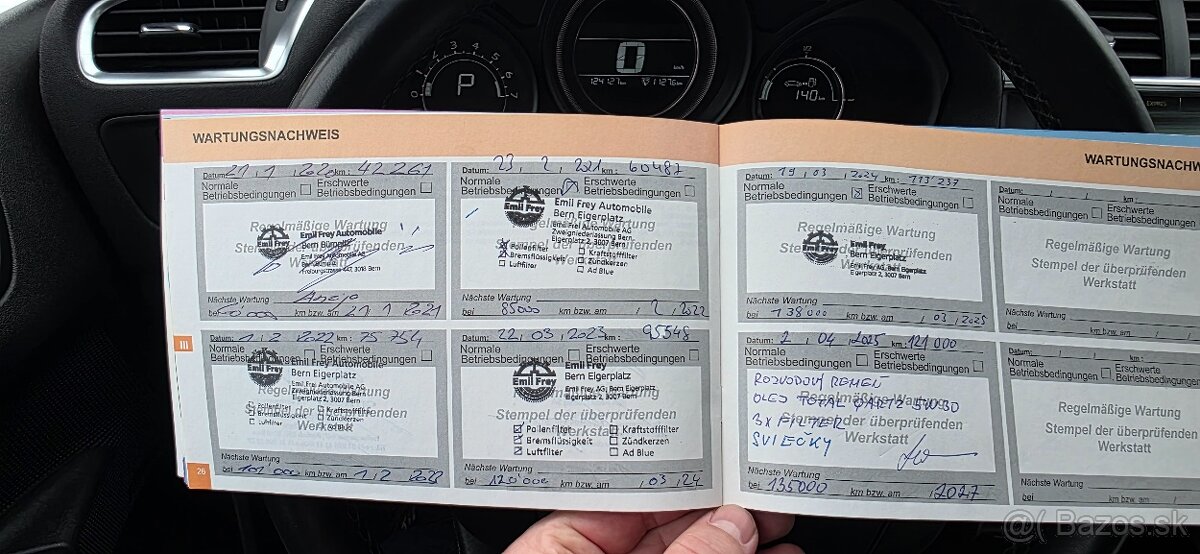 0 1 2 3 4 5 6 7
P
0
km/h
124127km
11276km
1/2
140km
EXPRES
WARTUNGSNACHWEIS
Datum: 21, 1, 20 km: 42 261
Normale Betriebsbedingungen
Erschwerte Betriebsbedingungen
Regelmäßige Wartung
Stempel der überprüfenden
Emil Frey
Emil Frey Automobile
Bern Bümpliz
Emil Frey Automobile AG
Freiburgstrasse 447, 3018 Bern
Nächste Wartung
bei km bzw. am 21, 1, 2021
Datum: 23, 2, 2021 km: 60487
Normale Betriebsbedingungen
Erschwerte Betriebsbedingungen
Emil Frey
Emil Frey Automobile
Bern Eigerplatz
Emil Frey Automobile AG
Zweigniederlassung Bern
Eigerplatz 2, 3007 Bern
Pollenfilter
Kraftstofffilter
Bremsflüssigkeit
Zündkerzen
Luftfilter
Ad Blue
Nächste Wartung
bei 85000 km bzw. am , 2, 2022
Datum: 1, 2 2022 km: 75 754
Normale Betriebsbedingungen
Erschwerte Betriebsbedingungen
Emil Frey
Bern Eigerplatz
Emil Frey Automobile AG
Eigerplatz 2, 3007 Bern
Pollenfilter
Kraftstofffilter
Bremsflüssigkeit
Zündkerzen
Luftfilter
Ad Blue
Nächste Wartung
bei 101'000 km bzw. am 1, 2 2023
Datum: 22, 03, 2023 km: 95548
Normale Betriebsbedingungen
Erschwerte Betriebsbedingungen
Emil Frey
Bern Eigerplatz
Emil Frey AG, Bern Eigerplatz
Eigerplatz 2, 3007 Bern
Stempel der überprüfenden
Werkstatt
Pollenfilter
Kraftstofffilter
Bremsflüssigkeit
Zündkerzen
Luftfilter
Ad Blue
Nächste Wartung
bei 120'000 km bzw. am , 03, 24
III
26
WARTUNGSNACHW
Datum: 19, 03, 2024 km: 113'237
Normale Betriebsbedingungen
Erschwerte Betriebsbedingungen
Regelmäßige Wartung
Stempel der überprüfenden
Emil Frey
Bern Eigerplatz
Emil Frey AG, Bern Eigerplatz
Eigerplatz 2, 3007 Bern
Nächste Wartung
bei 138000 km bzw. am , 03, 2025
Datum: , , km:
Normale Betriebsbedingungen
Erschwerte Betriebsbedingungen
Regelmäßige Wartung
Stempel der überprüfenden
Werkstatt
Nächste Wartung
bei km bzw. am
Datum: 2, 04, 2025 km: 121 000
Normale Betriebsbedingungen
Erschwerte Betriebsbedingungen
Regelmäßige Wartung
Stempel der überprüfenden
Werkstatt
ROZVODOVÝ REMEŇ
OLEJ TOTAL QARTZ 5W30
3x FILTER
SVIEČKY
Nächste Wartung
bei 135000 km bzw. am , 2027
Datum: , , km:
Normale Betriebsbedingungen
Erschwerte Betriebsbedingungen
Regelmäßige Wartung
Stempel der überprüfenden
Werkstatt
Nächste Wartung
bei km bzw. am
@( Bazos.sk